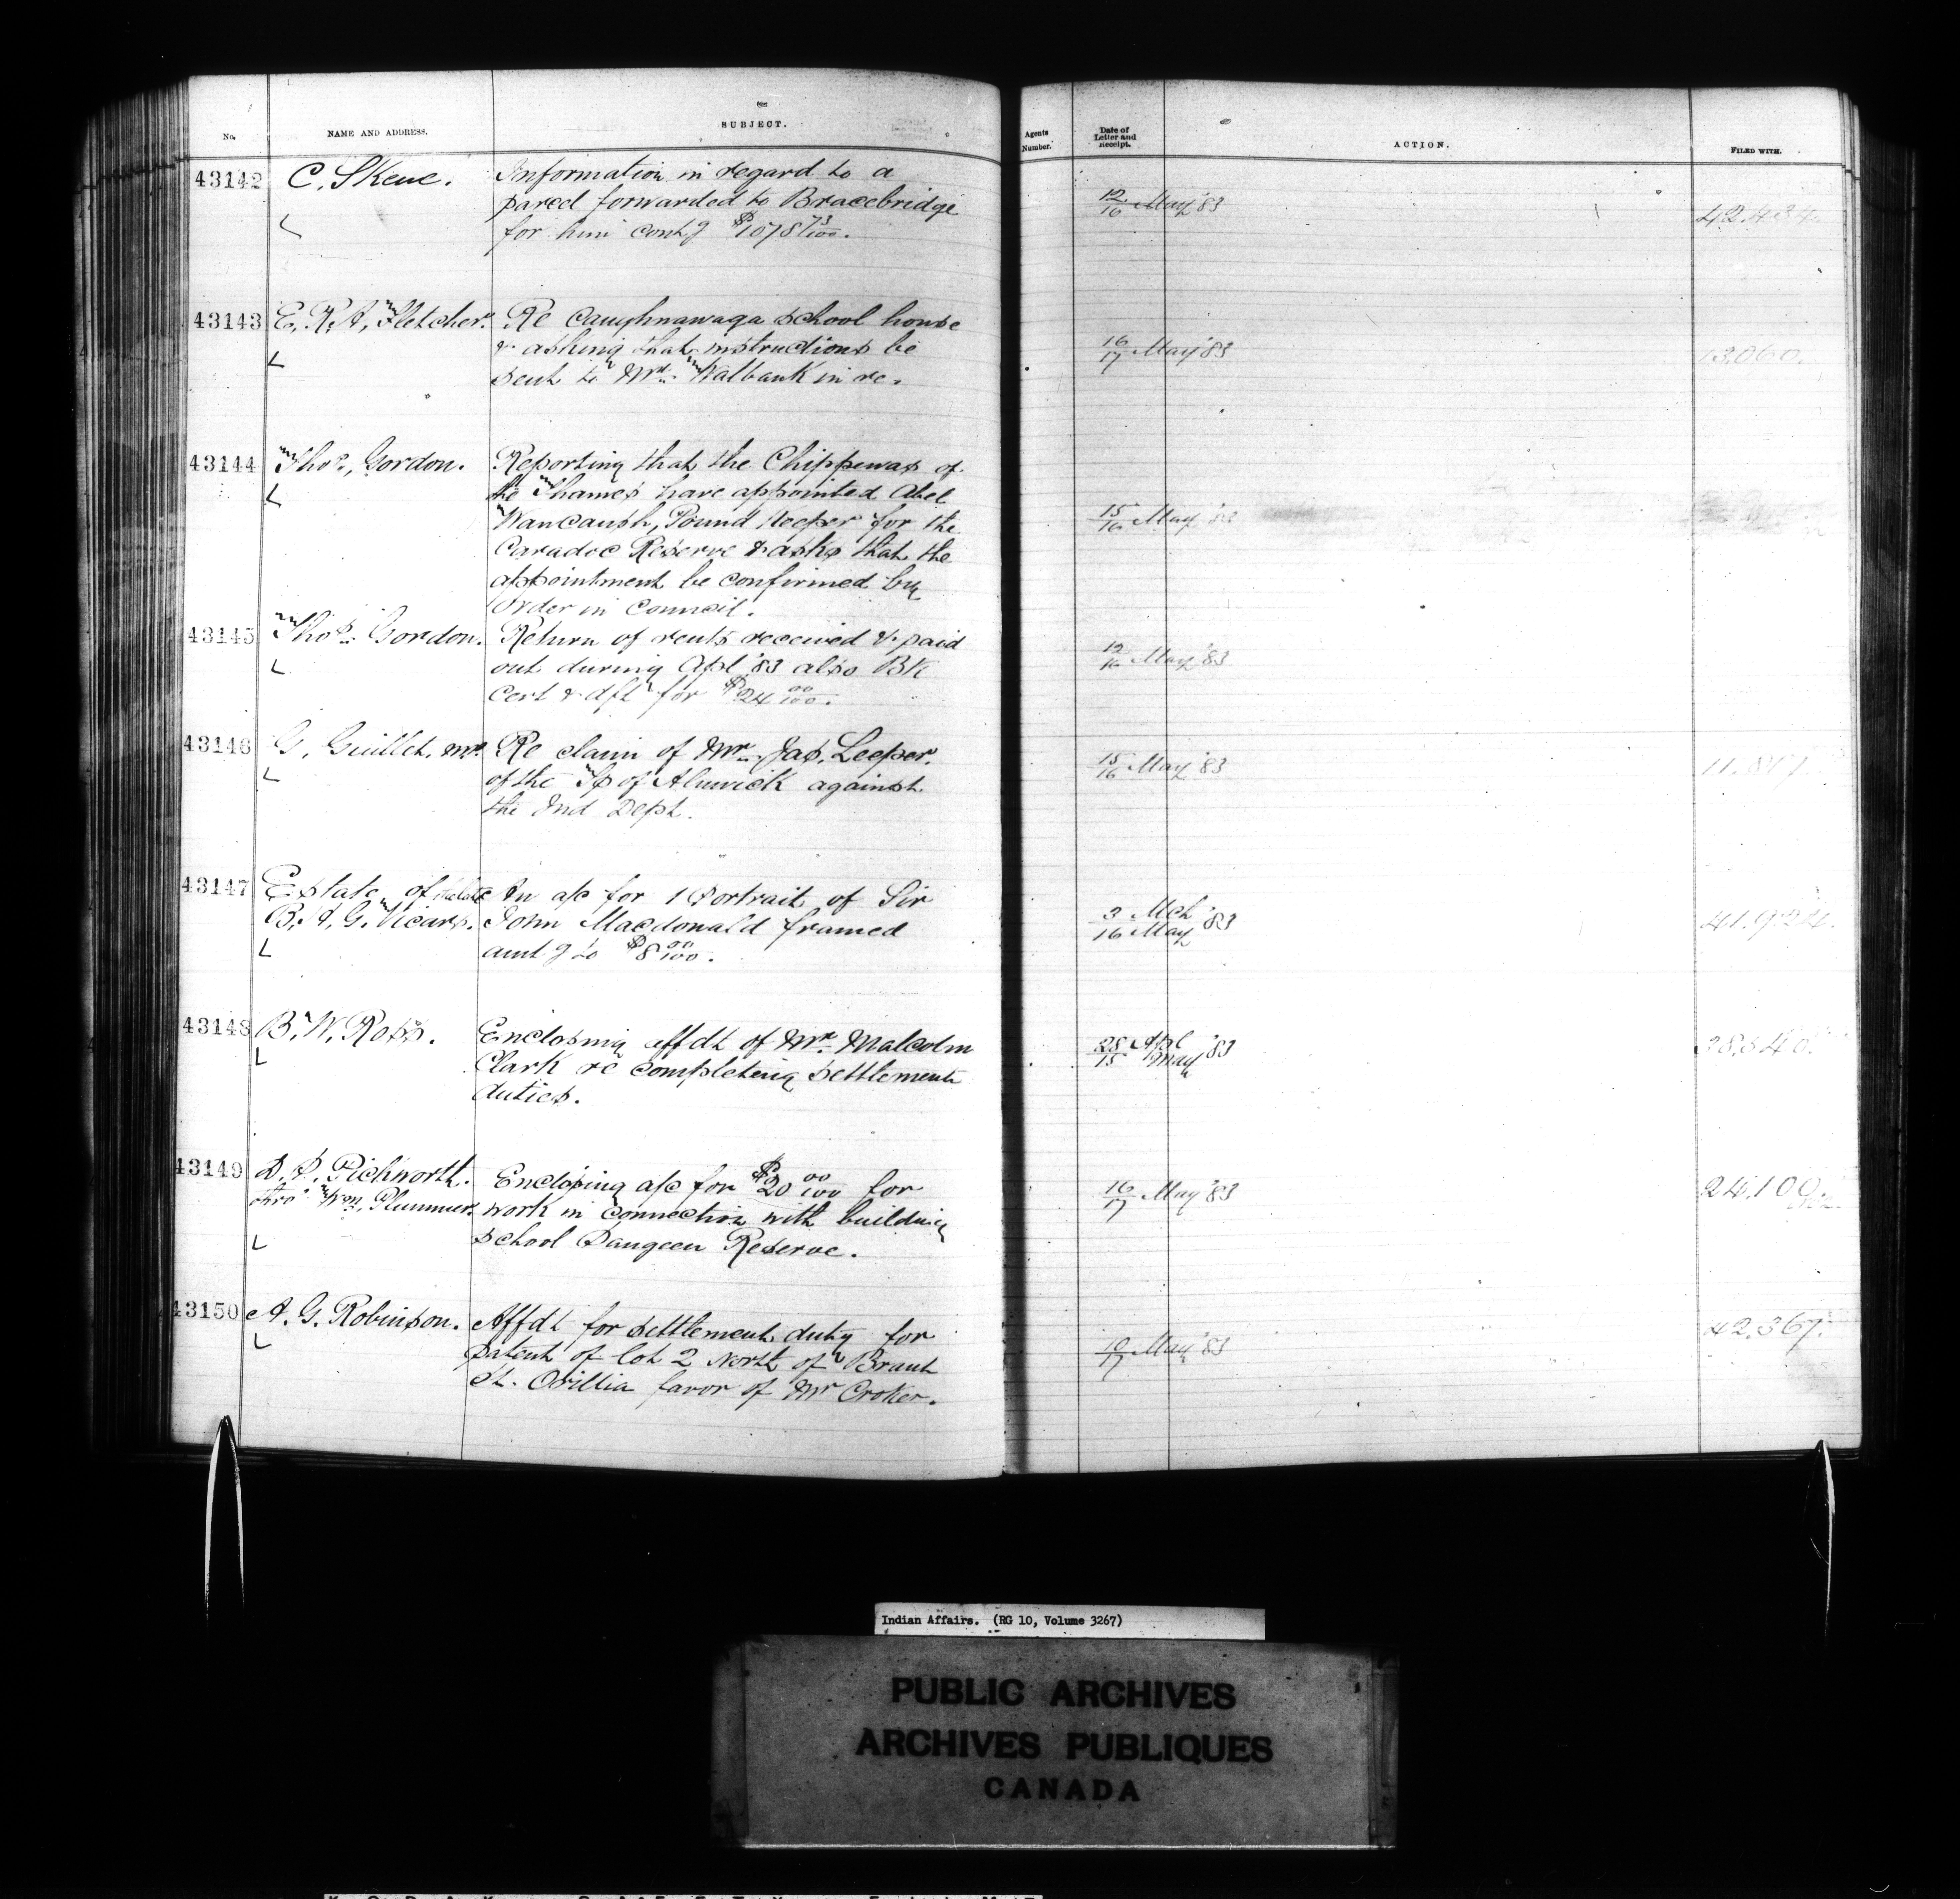 No.
NAME AND ADDRESS.
SUBJECT.
Agents Number.
Date of Letter and Receipt.
ACTION.
FILED WITH.
43142
C. Skene.
Information in regard to a
parcel forwarded to Bracebridge
for him contg $1078 73/100.
12/16 May '83
42.434.
43143
E. R. A. Fletcher.
Re Caughnawaga school house
& asking that instructions be
sent to Mr. Walbank in re.
16/17 May '83
13,060.
43144
Thos. Gordon.
Reporting that the Chippewas of
the Thames have appointed Abel
Waucaush, Pound Keeper for the
Caradoc Reserve & asks that the
appointment be confirmed by
Order in Council.
15/16 May '83
43145
Thos. Gordon.
Return of rents received & paid
out during Apl '83 also Bk
Cert & dft for $24 00/100.
12/16 May '83
43146
G. Guillet, MP.
Re claim of Mr. Jas. Leeper.
of the Tp of Alnwick against
the Ind Dept.
15/16 May '83
43147
Estate of the late
B. A. G. Vicars.
An a/c for 1 Portrait of Sir
John Macdonald framed
amtg to $8 00/100.
3 Mch
16 May '83
41.924.
43148
B. W. Ross.
Enclosing affdt of Mr. Malcolm
Clark re completing settlement
duties.
28 Apl
15 May '83
43149
Pichworth.
thro' Wm. Plummer.
Enclosing a/c for $20 00/100 for
work in connection with building
school Saugeen Reserve.
16/17 May '83
24,100.
43150
A. G. Robinson.
Affdt for settlement duty for
patent of lot 2 North of Brant
St. Orillia favor of Mr Croker.
10/17 May '83
42,367.
Indian Affairs. (RG 10, Volume 3267)
PUBLIC ARCHIVES
ARCHIVES PUBLIQUES
CANADA